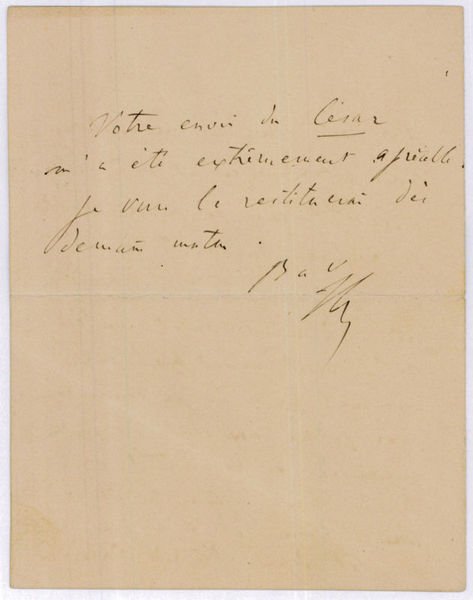 Votre envoi du César
m'a été extrêmement agréable.
Je vous le restituerai dès
demain matin.
B a v